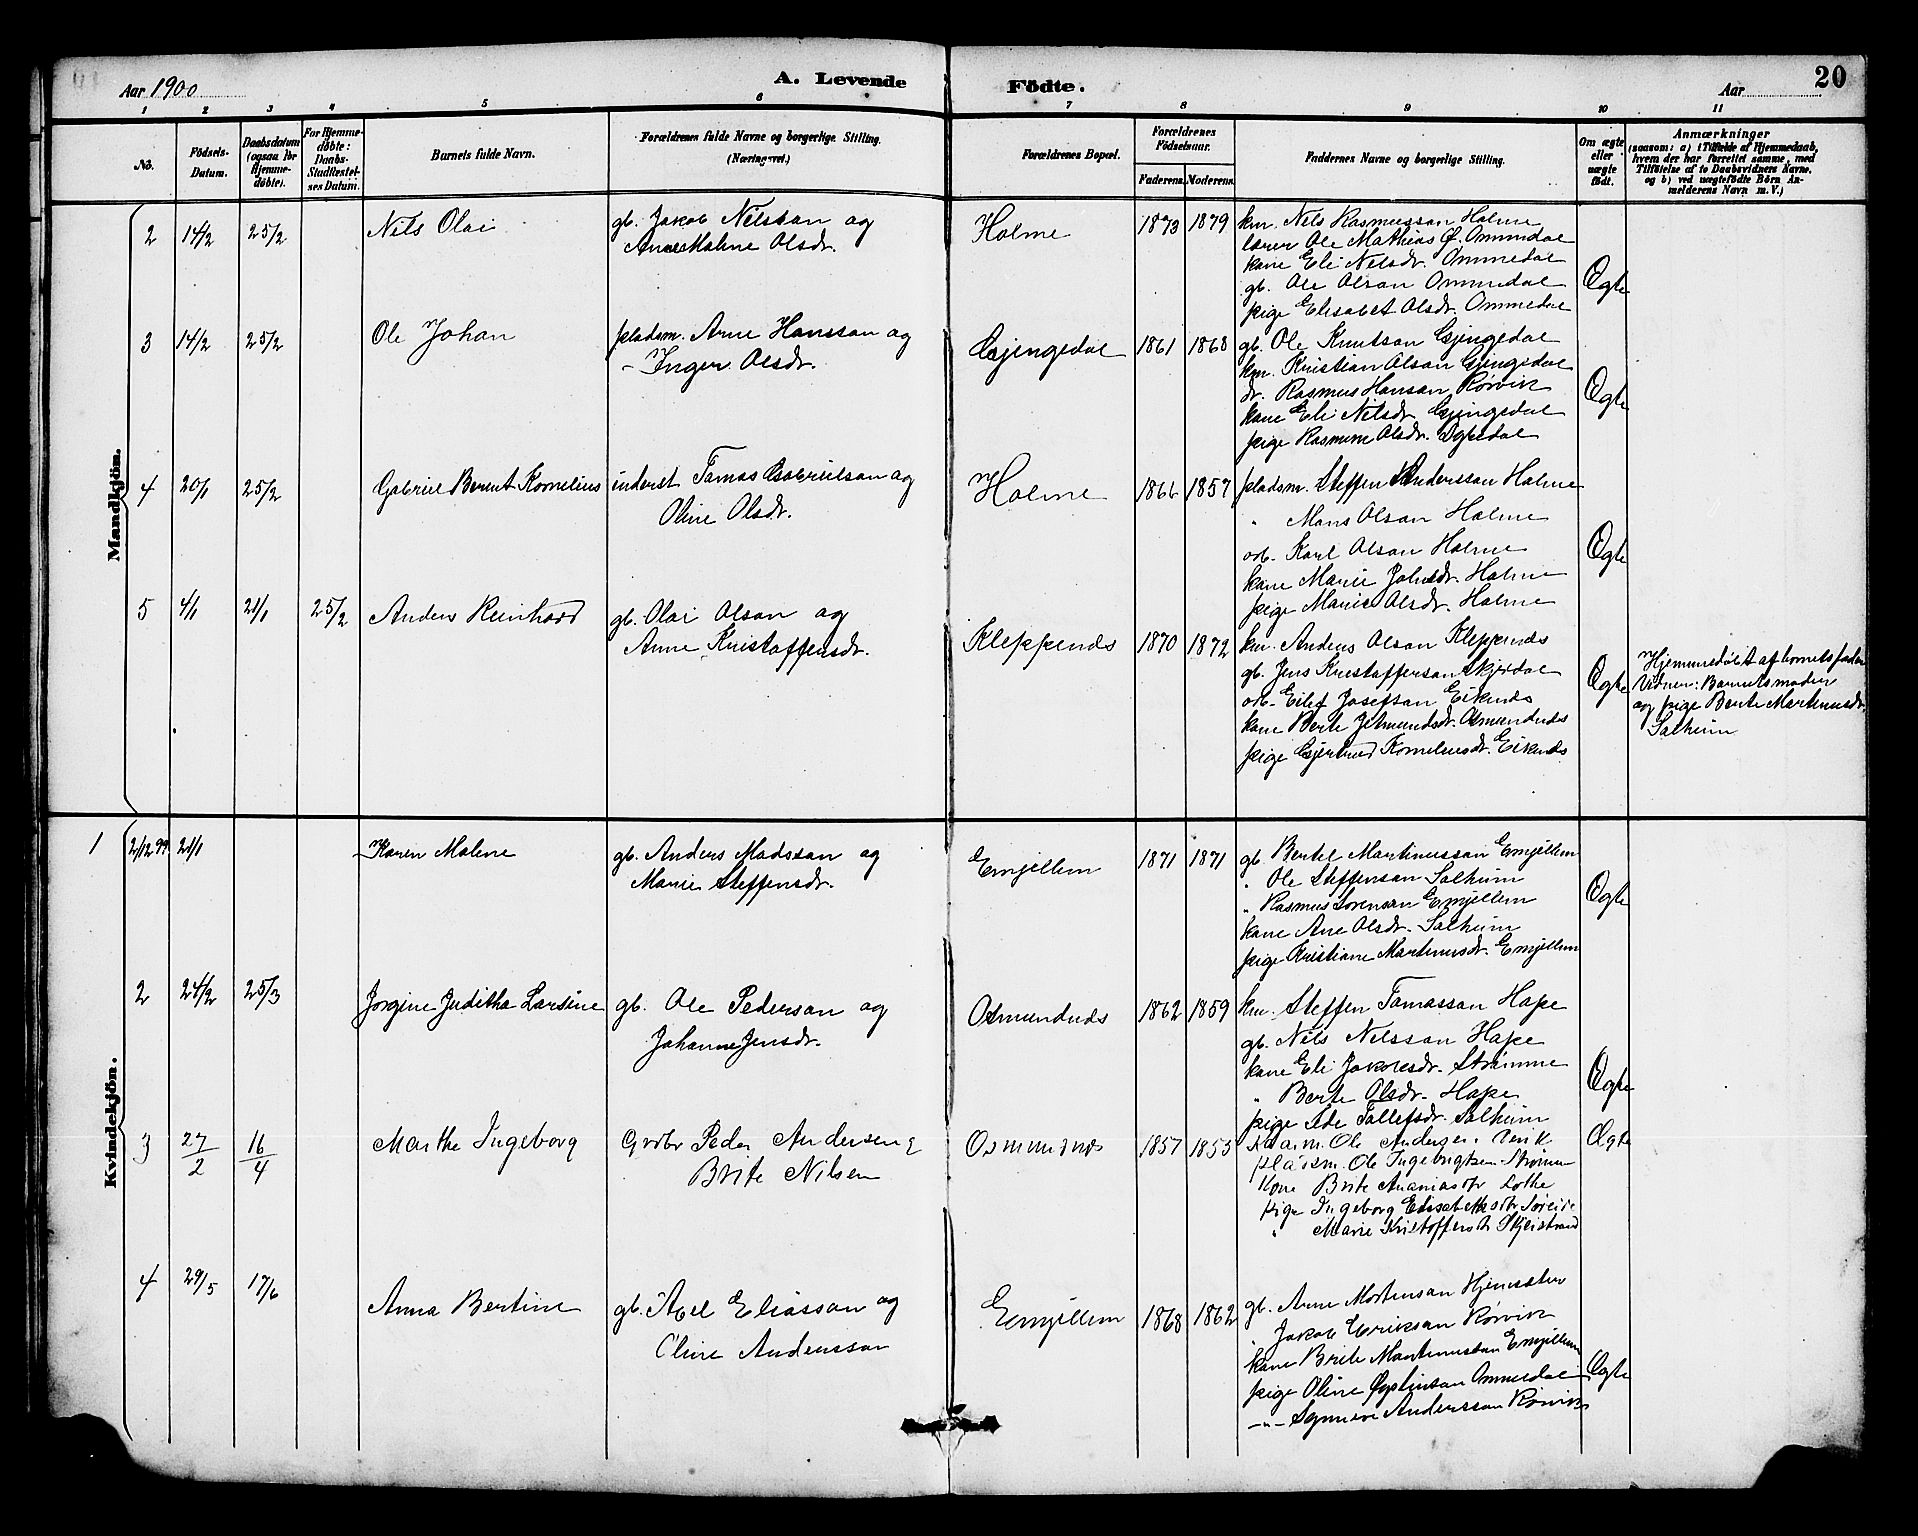 Aar 1900
A. Levende
Födte.
Aar
20
1 2 3 4 5 6 7 8 9 10 11
No.
Födsels-
Datum.
Daabsdatum
(ogsaa for
Hjemme-
döbte).
For Hjemme-
döbte:
Daabs-
Stadfæstel-
ses Datum.
Barnets fulde Navn.
Forældrenes fulde Navne og borgerlige Stilling.
(Næringsvei.)
Forældrenes Bopæl.
Forældrenes
Födselsaar.
Faderens. Moderens.
Faddernes Navne og borgerlige Stilling.
Om ægte
eller
uægte
födt.
Anmærkninger
(saasom: a) i Tilfælde af Hjemmedaab,
hvem der har forrettet samme, med
Tilföielse af to Daabsvidners Navne,
og b) ved uægtefödte Börn An-
melderens Navn m. V.)
Mandkjön.
2 14/2 25/2 Nils Olai
gb. Jakob Nilssan og
Anne Malene Olsdr.
Holme 1873 1879
km. Nils Rasmussan Holme
lærer Ole Mathias Ø. Ommedal
kone Eli Nilsdr. Ommedal
gb. Ole Olsan Ommedal
pige Elisabet Olsdr. Ommedal
Ægte
3 14/2 25/2 Ole Johan
pladsm. Arne Hanssan og
Inger Olsdr.
Gjengedal 1861 1868
gb. Ole Knutsan Gjengedal
km. Kristian Olsan Gjengedal
dr. Rasmus Hansan Rørvik
kone Eli Nilsdr. Gjengedal
pige Rasmine Olsdr.
Ægte
4 20/1 25/2 Gabriel Bernt Kornelius
inderst Tomas Gabrielsan og
Oline Olsdr.
Holme 1866 1857
pladsm. Steffen Anderssan Holme
" Mons Olsan Holme
Karl Olsan Holme
kone Marie Johnsdr. Holme
pige Marie Olsdr. Holme
Ægte
5 4/1 21/1 25/2 Anders Reinhard
gb. Olai Olsan og
Anne Kristaffersdr.
Kleppenes 1870 1872
km. Anders Olsan Kleppenes
gb. Jens Kristaffersan Skjerdal
Eilef Josefsan Eikenes
kone Berte Jetmundsdr. Osmundnes
pige Gjertrud Kornelusdr. Eikenes
Ægte
Hjemmedøbt af barnets fader
Vidner: Barnets moder
og pige Berte Martinusdr.
Solheim
Kvindekjön.
1 2/12 99 21/1 Karen Malene
gb. Anders Madssan og
Marie Steffensdr.
Emjellem 1871 1871
gb. Bertel Martinussan Emjellem
" Ole Steffensan Solheim
" Rasmus Sørensan Emjellem
kone Ane Olsdr. Solheim
pige Kristiane Martinusdr. Emjellem
Ægte
2 24/2 25/3 Jørgine Juditha Larsine
gb. Ole Pedersan og
Johanne Jensdr.
Osmundnes 1862 1859
km. Steffen Tomassan Hope
gb. Nils Nilssan Hope
kone Eli Jakobsdr. Strømme
" Berte Olsdr. Hope
pige Ade Tollefsdr. Solheim
Ægte
3 27/2 16/4 Marthe Ingeborg
Grdbr Peder Andersen &
Brite Nilsen
Osmundnes 1857 1853
Ole Andersen
Pladsm. Ole Ingebrigtsen Strømm
Kone Brite Ananiasdtr Lothe
Pige Ingeborg Elisabet
" Marie Kristoffersdtr Skjeistrand
Ægte
4 29/5 17/6 Anna Bertine
gb. Axel Eliassan og
Oline Anderssan
Emjellem 1868 1862
gb. Arne Mortensan
Jakob Eriksan Rørvik
kone Brite Martinussan Emjellem
pige Oline Øysteinsan Ommedal
-"- Synneve Anderssan Rørvik
Ægte